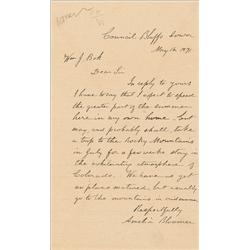 Council Bluffs Iowa
May 12 1891
Wm J Bok
Dear Sir
In reply to yours
I have to say that I expect to spend the
greater part of the summer
here in my own home, but
may and probably shall, take
a trip to the Rocky Mountains
in July for a few weeks stay in
the exhilarating atmosphere of
Colorado. We have as yet
no plans matured but usually
go to the mountains in midsummer
Respectfully
Amelia Bloomer